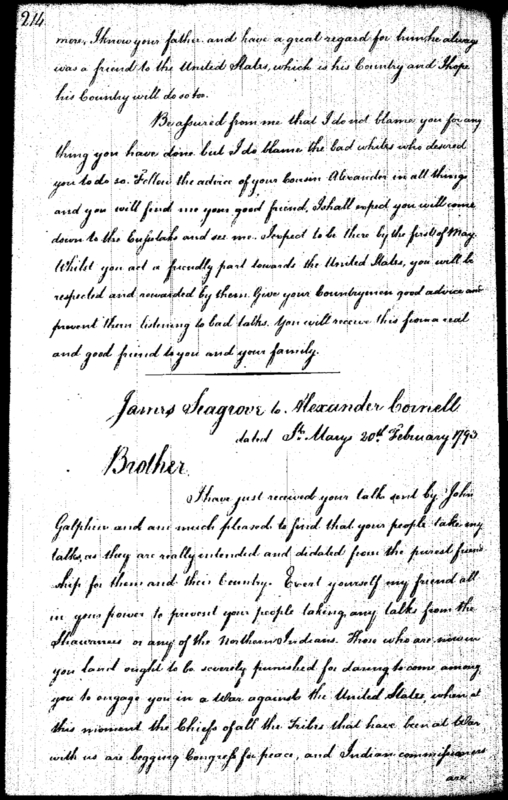 214
more, I know your father and have a great regard for him, he always
was a friend to the United States, which is his Country and I hope
his Country will do so too.
Be assured from me that I do not blame you for any
thing you have done but I do blame the bad whites who desired
you to do so. Follow the advice of your Cousin Alexander in all things
and you will find me your good friend, I shall expect you will come
down to the Cussetahs and see me. I expect to be there by the first of May.
Whilst you act a friendly part towards the United States, you will be
respected and rewarded by them. Give your Countrymen good advice and
prevent them listening to bad talks. You will receive this from a real
and good friend to you and your family.
James Seagrove to Alexander Cornell
dated St. Marys 20th February 1793
Brother
I have just received your talk sent by John
Galphin and am much pleased to find that your people take my
talks, as they are really intended and dictated from the purest friend
ship for them and their Country. Exert yourself my friend all
in your power to prevent your people taking any talks from the
Shawnees or any of the Northern Indians. Those who are now in
you land ought to be severely punished for daring to come among
you to engage you in a War against the United States, when at
this moment the Chiefs of all the Tribes that have been at War
with us are begging Congress for peace, and Indian commissioners
are